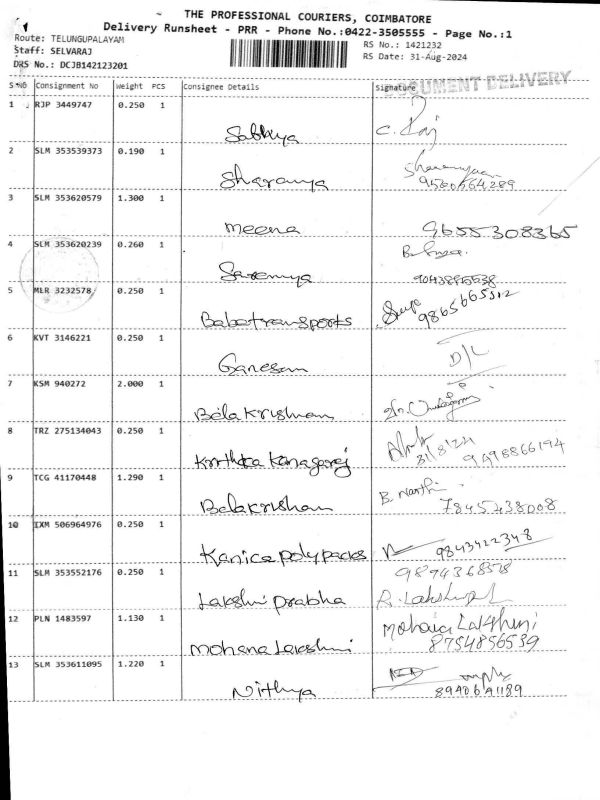 THE PROFESSIONAL COURIERS, COIMBATORE
Delivery Runsheet - PRR - Phone No.:0422-3505555 - Page No.:1
Route: TELUNGUPALAYAM
RS No.: 1421232
Staff: SELVARAJ
RS Date: 31-Aug-2024
DRS No.: DCJB142123201
DOCUMENT DELIVERY
S.No Consignment No Weight PCS Consignee Details Signature
1 RJP 3449747 0.250 1
Sabhya C. Raj
2 SLM 353539373 0.190 1
Sharanya
3 SLM 353620579 1.300 1
Meena 9655308365
4 SLM 353620239 0.260 1
Saranya
5 MLR 3232578 0.250 1
Babatransports 9865665512
6 KVT 3146221 0.250 1
Ganesan D/L
7 KSM 940272 2.000 1
Bala Krishnan
8 TRZ 275134043 0.250 1
Kirthika Kanagaraj 31/8/24 9498866194
9 TCG 41170448 1.290 1
Balakrishan B. Narthi 7845238008
10 IXM 506964976 0.250 1
Kanica polypacks 9843422348
11 SLM 353552176 0.250 1
989436858
Lakshmi prabha R. Lakshmi
12 PLN 1483597 1.130 1
Mohana Lakshmi 8754856539
13 SLM 353611095 1.220 1
Nithya